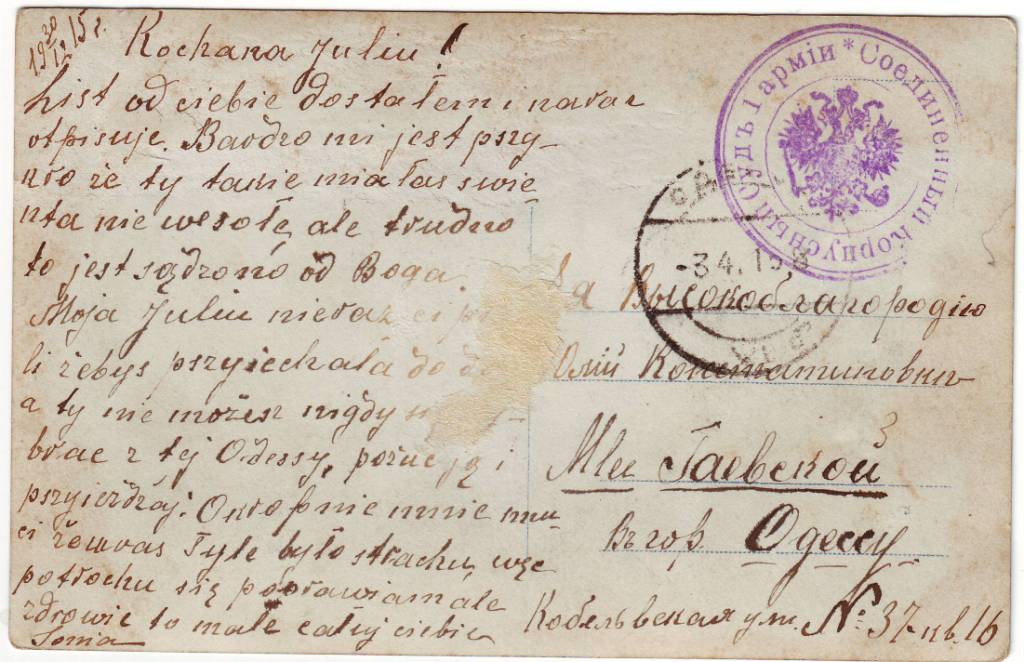 19 30/IV 15 г.
Kochana Juliu!
List od ciebie dostałem i naraz
otpisuje. Bardzo mi jest przy-
kro że ty takie miałas swie
nta nie wesołe, ale trudno
to jest sądzono od Boga.
Moja Juliu nieraz ci
li żebys przyjechała do
a ty nie możesz nigdy
brac z tej Odessy, poruc ją i
przyjezdzaj. Okropnie mnie mu
ci Tyle było strachu, więc
potrochu się poprawiam ale
zdrowie to małe całuj ciebie
Соединенный Корпусный Судъ 1 арміи *
-3 4. 15
Высокоблагородію
Юліи Константиновнѣ
Mlle Гаевской
Въ гор. Одессу
ул. № 37 кв. 16